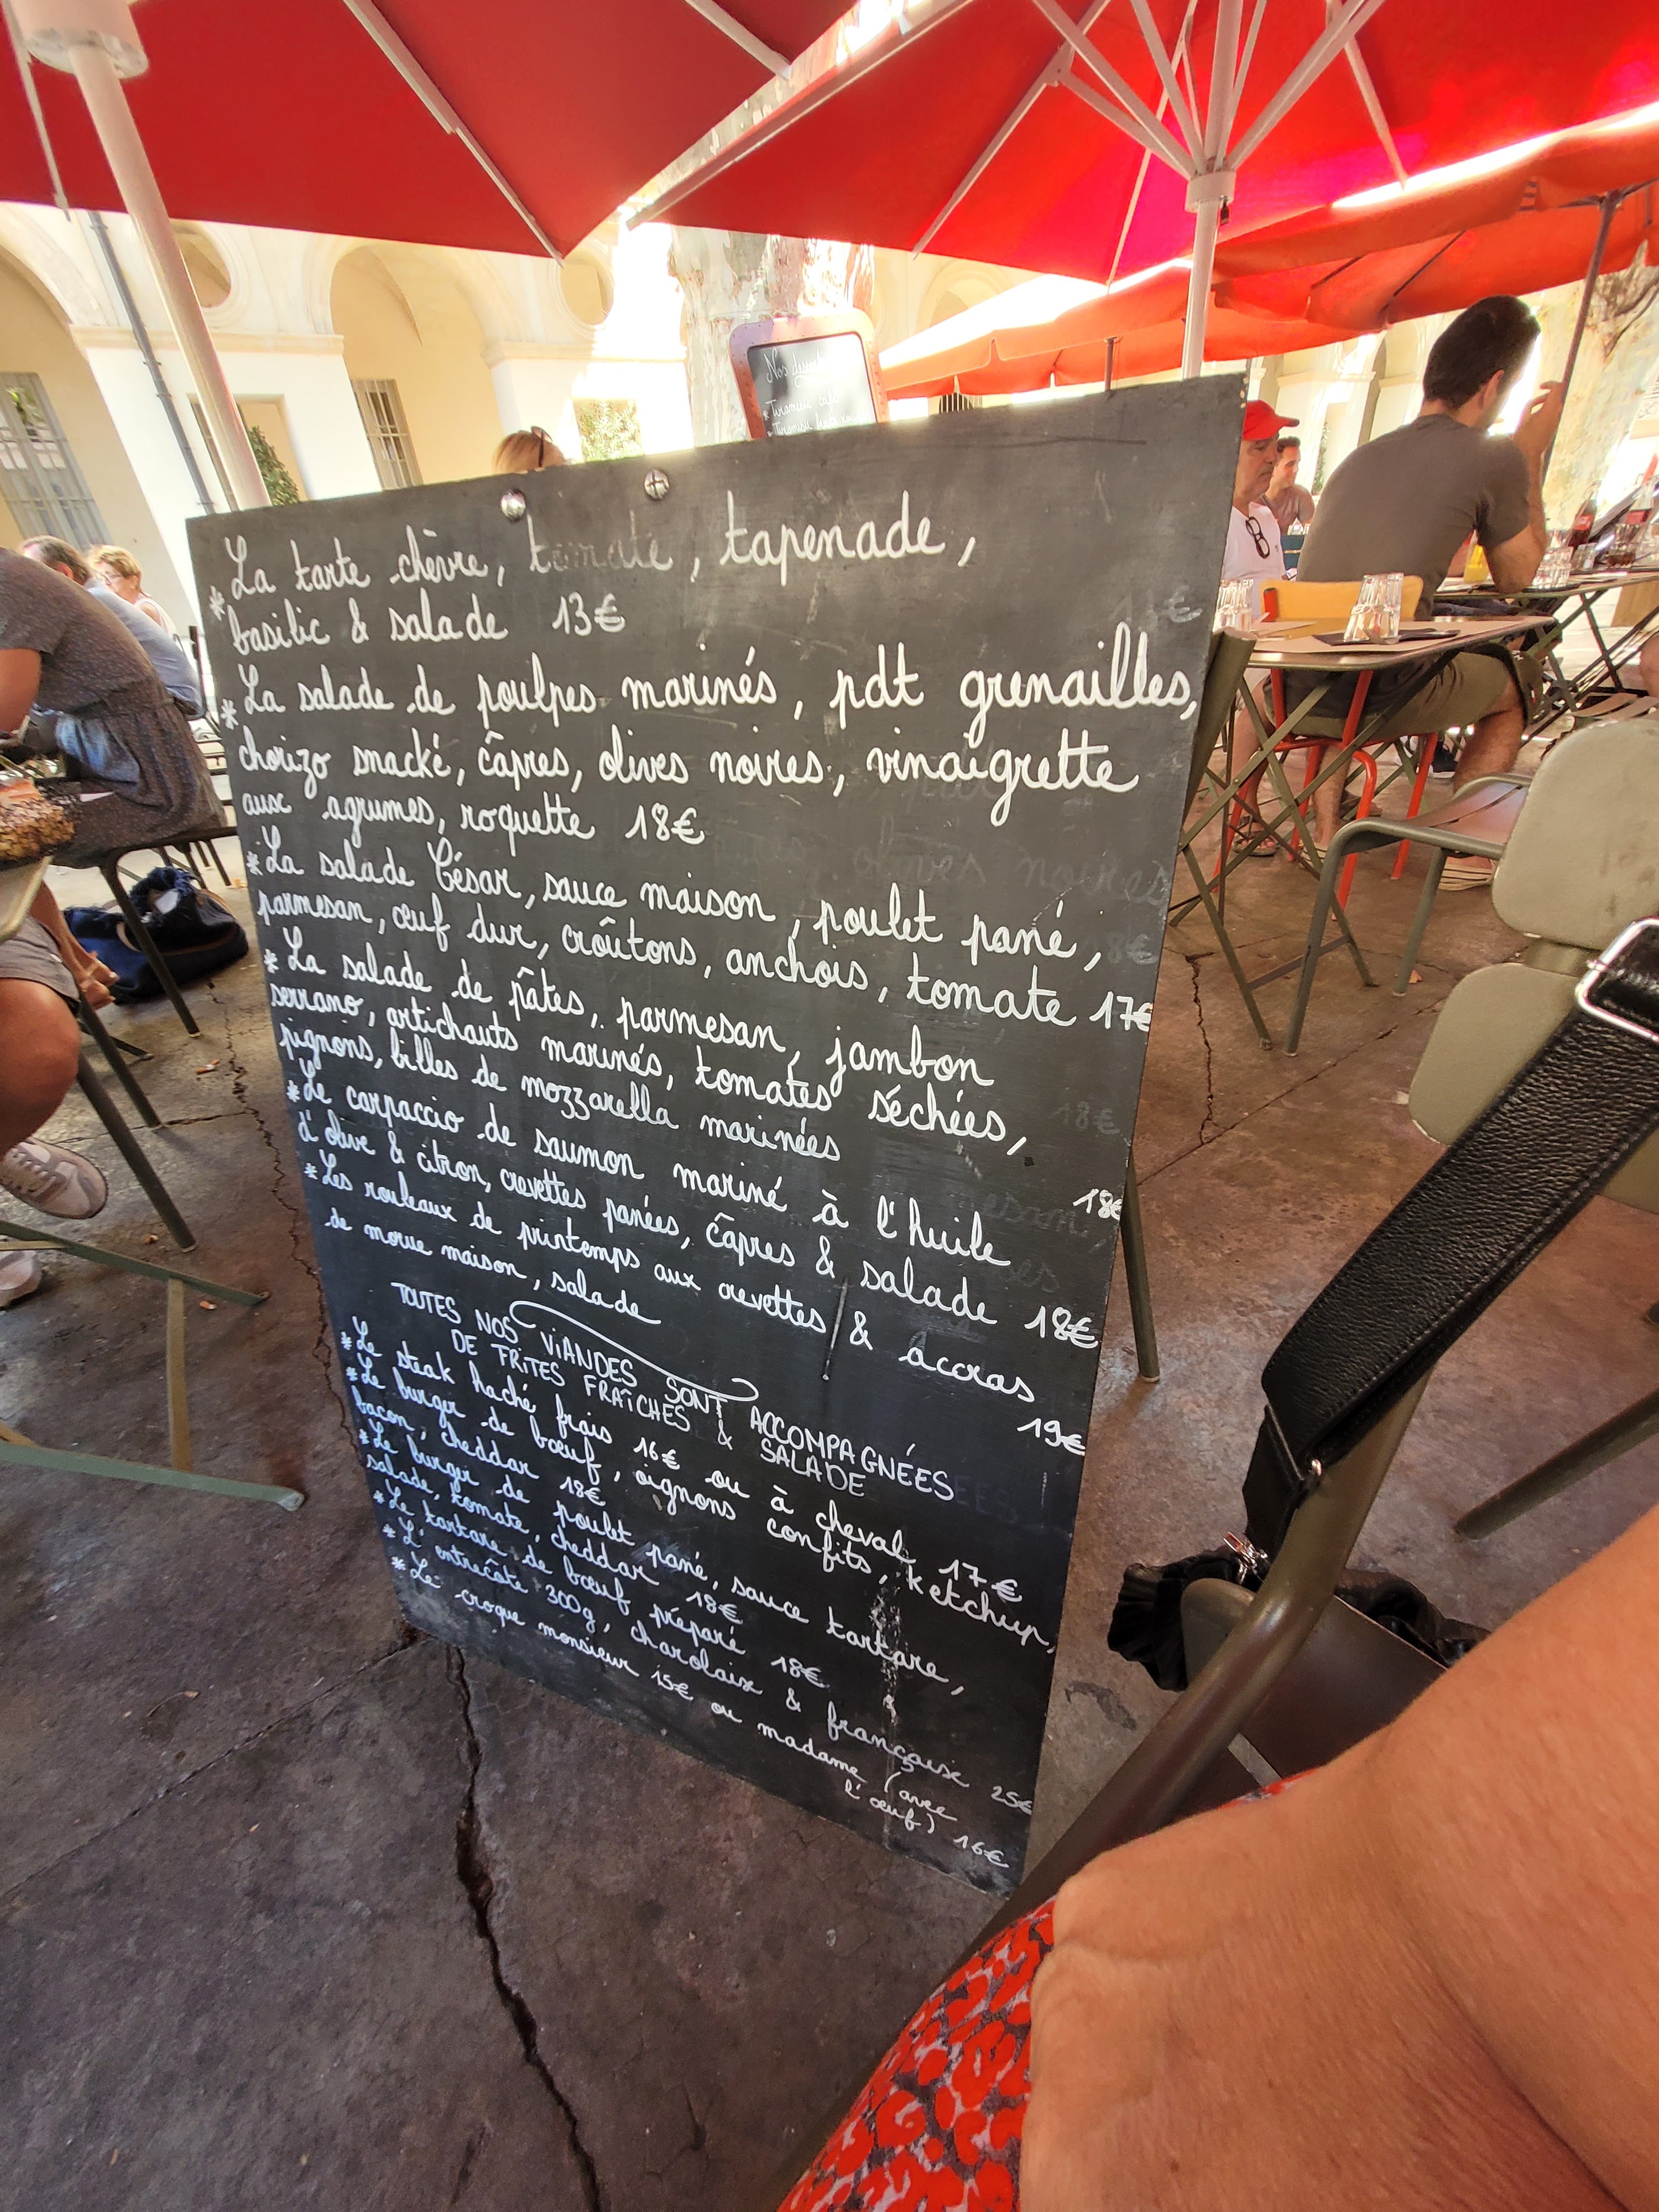 Nos
* Tiramisu café
* Tiramisu
* La tarte chèvre, tomate, tapenade,
basilic & salade 13€
* La salade de poulpes marinés, pdt grenailles,
chorizo snacké, câpres, olives noires, vinaigrette
aux agrumes, roquette 18€
* La salade César, sauce maison, poulet pané,
parmesan, œuf dur, croûtons, anchois, tomate 17€
* La salade de pâtes, parmesan, jambon
serrano, artichauts marinés, tomates séchées,
pignons, billes de mozzarella marinées 18€
* Le carpaccio de saumon mariné à l'huile
d'olive & citron, crevettes panées, câpres & salade 18€
* Les rouleaux de printemps aux crevettes & accras
de morue maison, salade 19€
TOUTES NOS VIANDES SONT ACCOMPAGNÉES
DE FRITES FRAÎCHES & SALADE
* Le steak haché frais 16€ ou à cheval 17€
* Le burger de bœuf, oignons confits, ketchup,
bacon, cheddar 18€
* Le burger de poulet pané, sauce tartare,
salade, tomate, cheddar 18€
* Le tartare de bœuf préparé 18€
* L'entrecôte 300g, charolaise & française 25€
* Le croque monsieur 15€ ou madame (avec
l'œuf) 16€